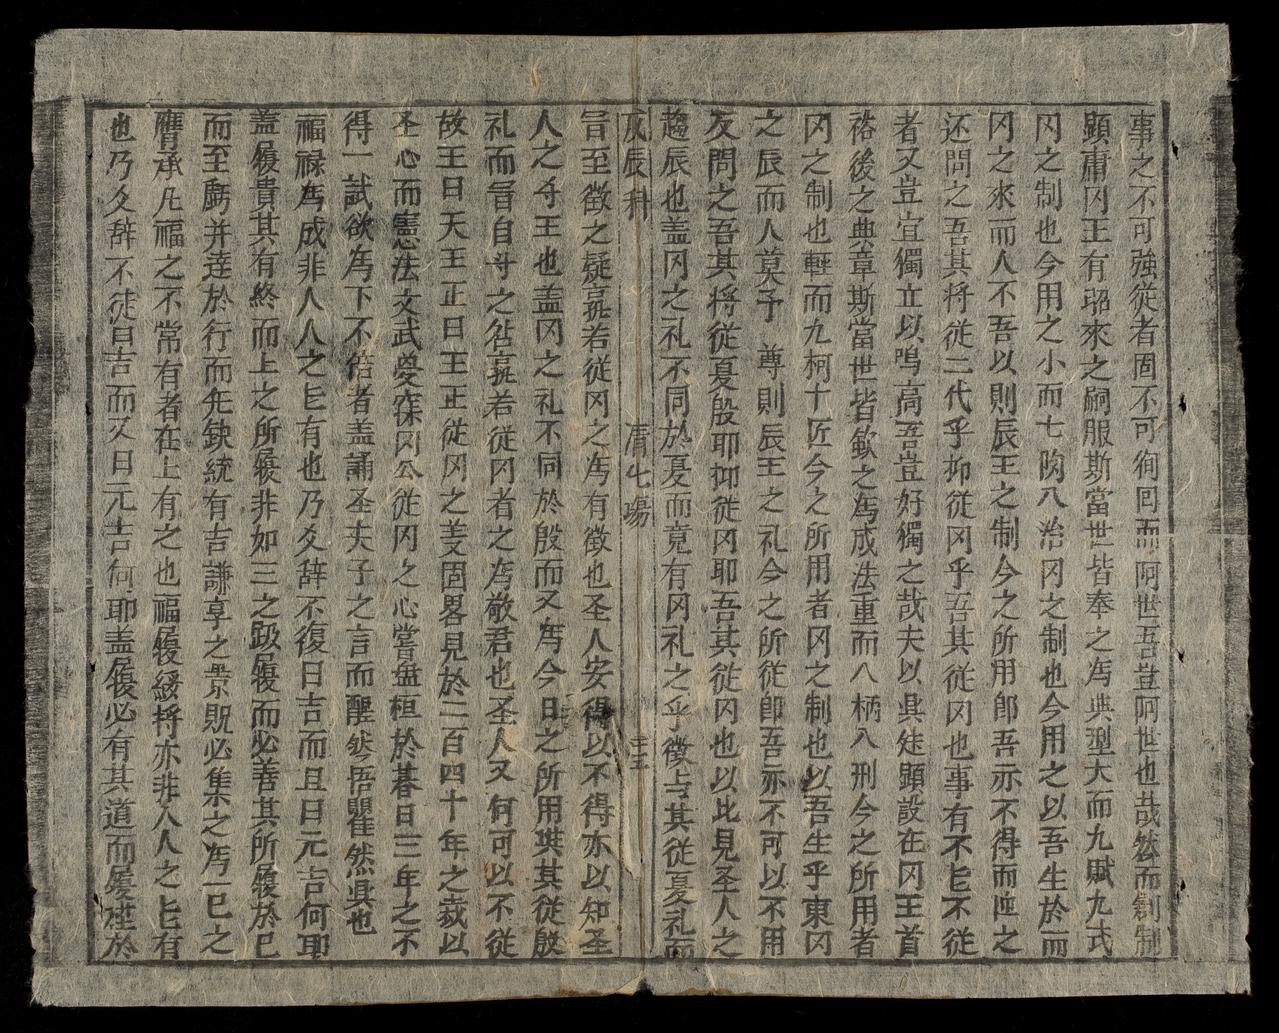 事之不可強従者固不可徇同而阿世吾豈阿世也哉然而制制
顕肅冈王有昭來之嗣服斯當世皆奉之為典型大而九賦九式
冈之制也今用之小而七 八治冈之制也今用之以吾生於而
冈之來而人不吾以則辰王之制今之所用即吾亦不得而 之
还問之吾其将従二代乎抑従冈乎吾其従冈也事有不 不従
者又豈宜獨立以鳴高吾豈好獨之哉夫以具 顕設在冈王首
裕後之典章斯當世皆歛之為成法重而八柄八刑今之所用者
冈之制也輕而九柯十匠今之所用者冈之制也以吾生乎東冈
之辰而人莫予尊則辰王之礼今之所従即吾亦不可以不用
友問之吾其将従夏殷耶抑従冈耶吾其従冈也以比見圣人之
趨辰也盖冈之礼不同於夏而竟有冈礼之乎徵与其従夏礼而
戊辰科 庯七場 二三
旨至徵之疑寡若従冈之為有徵也圣人安得以不得亦以知圣
人之 王也盖冈之礼不同於殷而又為今日之所用与其従殷
礼而 自 之 寡若従冈者之為敬君也圣人又何可以不従
故王日天王正日王正従冈之美固畧見於二百四十年之裁以
圣心而憲法文武 寐冈公従冈之心嘗盤桓於暮日三年之不
得一試欲為下不倍者盖誦圣夫子之言而醒然悟瞿然具也
福祿為成非人人之 有也乃爻辞不復日吉而且日元吉何耶
盖履貴其有終而上之所履非如三之跋履而必善其所履於已
而至虧并逹於行而 缺統有吉謙享之景貺必集之為一巳之
膺承凡福之不常有者在上有之也福履綏将亦非人人之 有
也乃爻辞不徒日吉而又日元吉何耶盖履必有其道而履 於